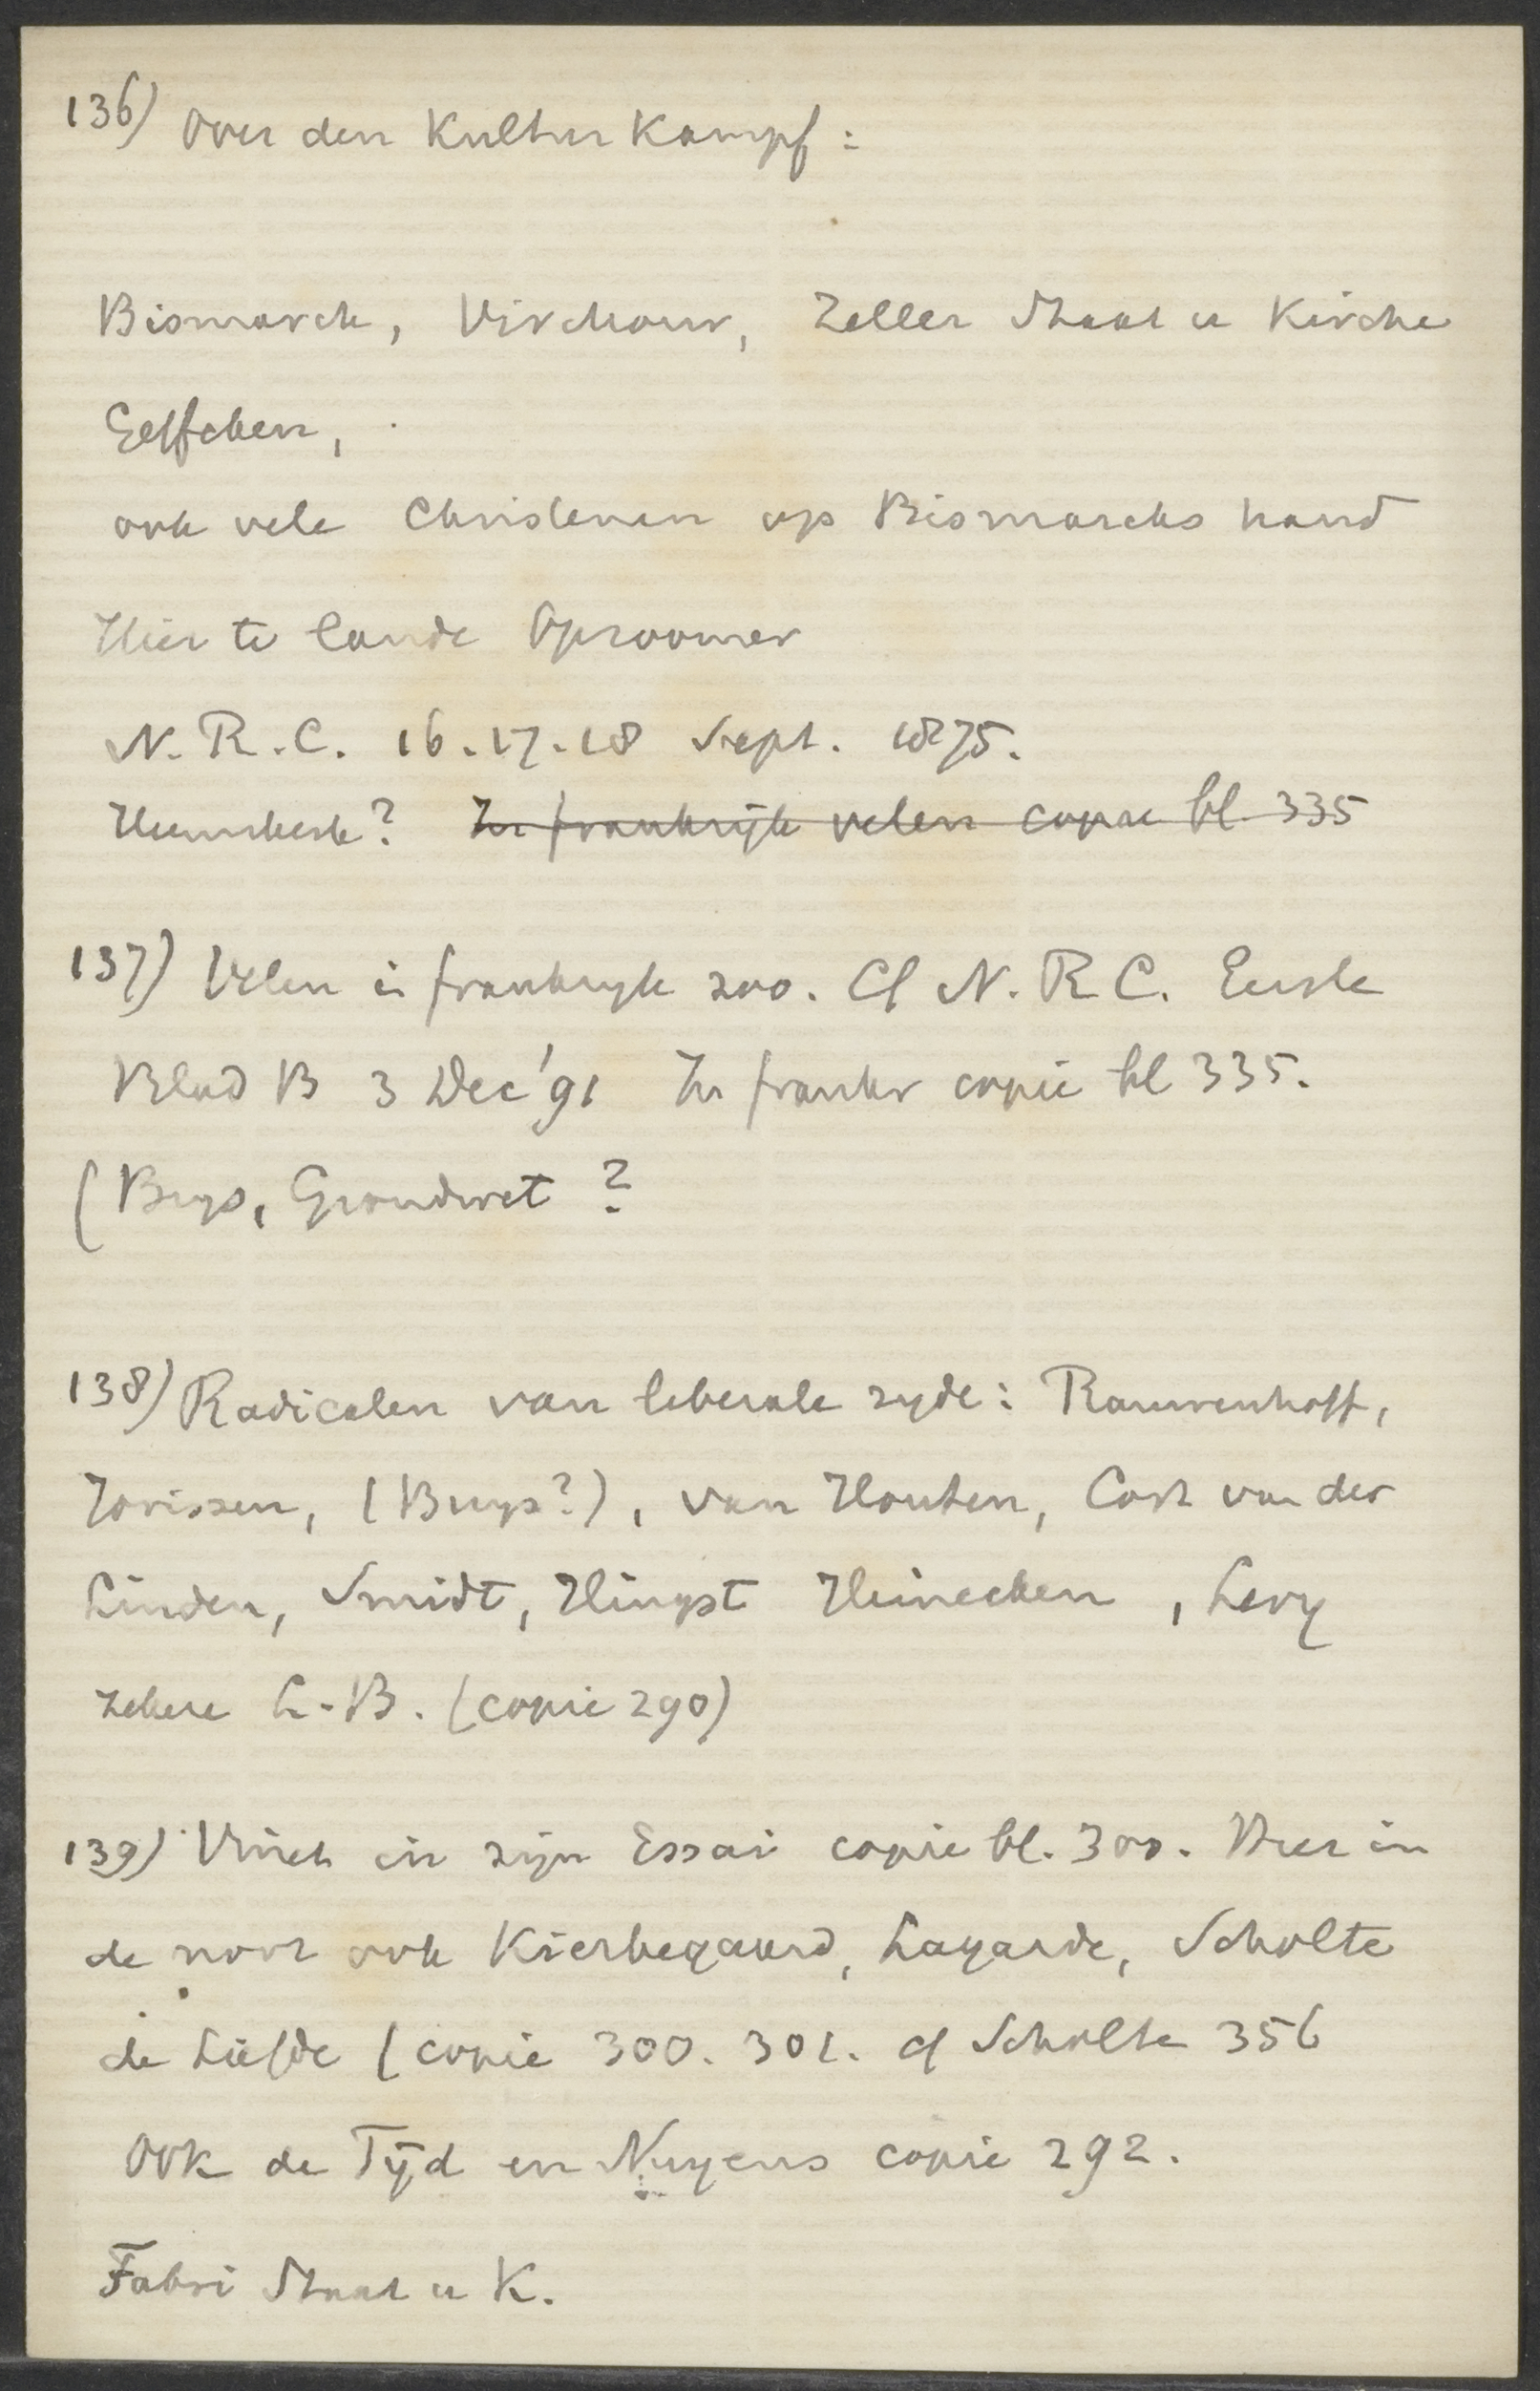 136) Over den Kultur Kampf:
Bismarck, Virchow, Zeller Staat u Kirche
Geffcken,
ook vele Christenen op Bismarcks hand
Hier te lande Opzoomer
N.R.C. 16.17.18 Sept. 1875.
Heemskerk? In frankrijk velen copie bl. 335
137) Velen in frankryk zoo. Cf N.R.C. Eerste
Blad B 3 Dec '91 In frankr copie bl 335.
(Buys, Grondwet ?
138) Radicalen van liberale zyde: Rauwenhoff,
Jorissen, (Buys?), van Houten, Cort van der
Linden, Smidt, Hingst Heinecken , Levy
zekere L.-B. (copie 290)
139) Vinet in zijn Essai copie bl. 300. Hier in
de noot ook Kierkegaard, Lagarde, Scholte
de Liefde (copie 300. 301. cf Scholte 356
Ook de Tijd en Nuyens copie 292.
Fabri Staat u K.